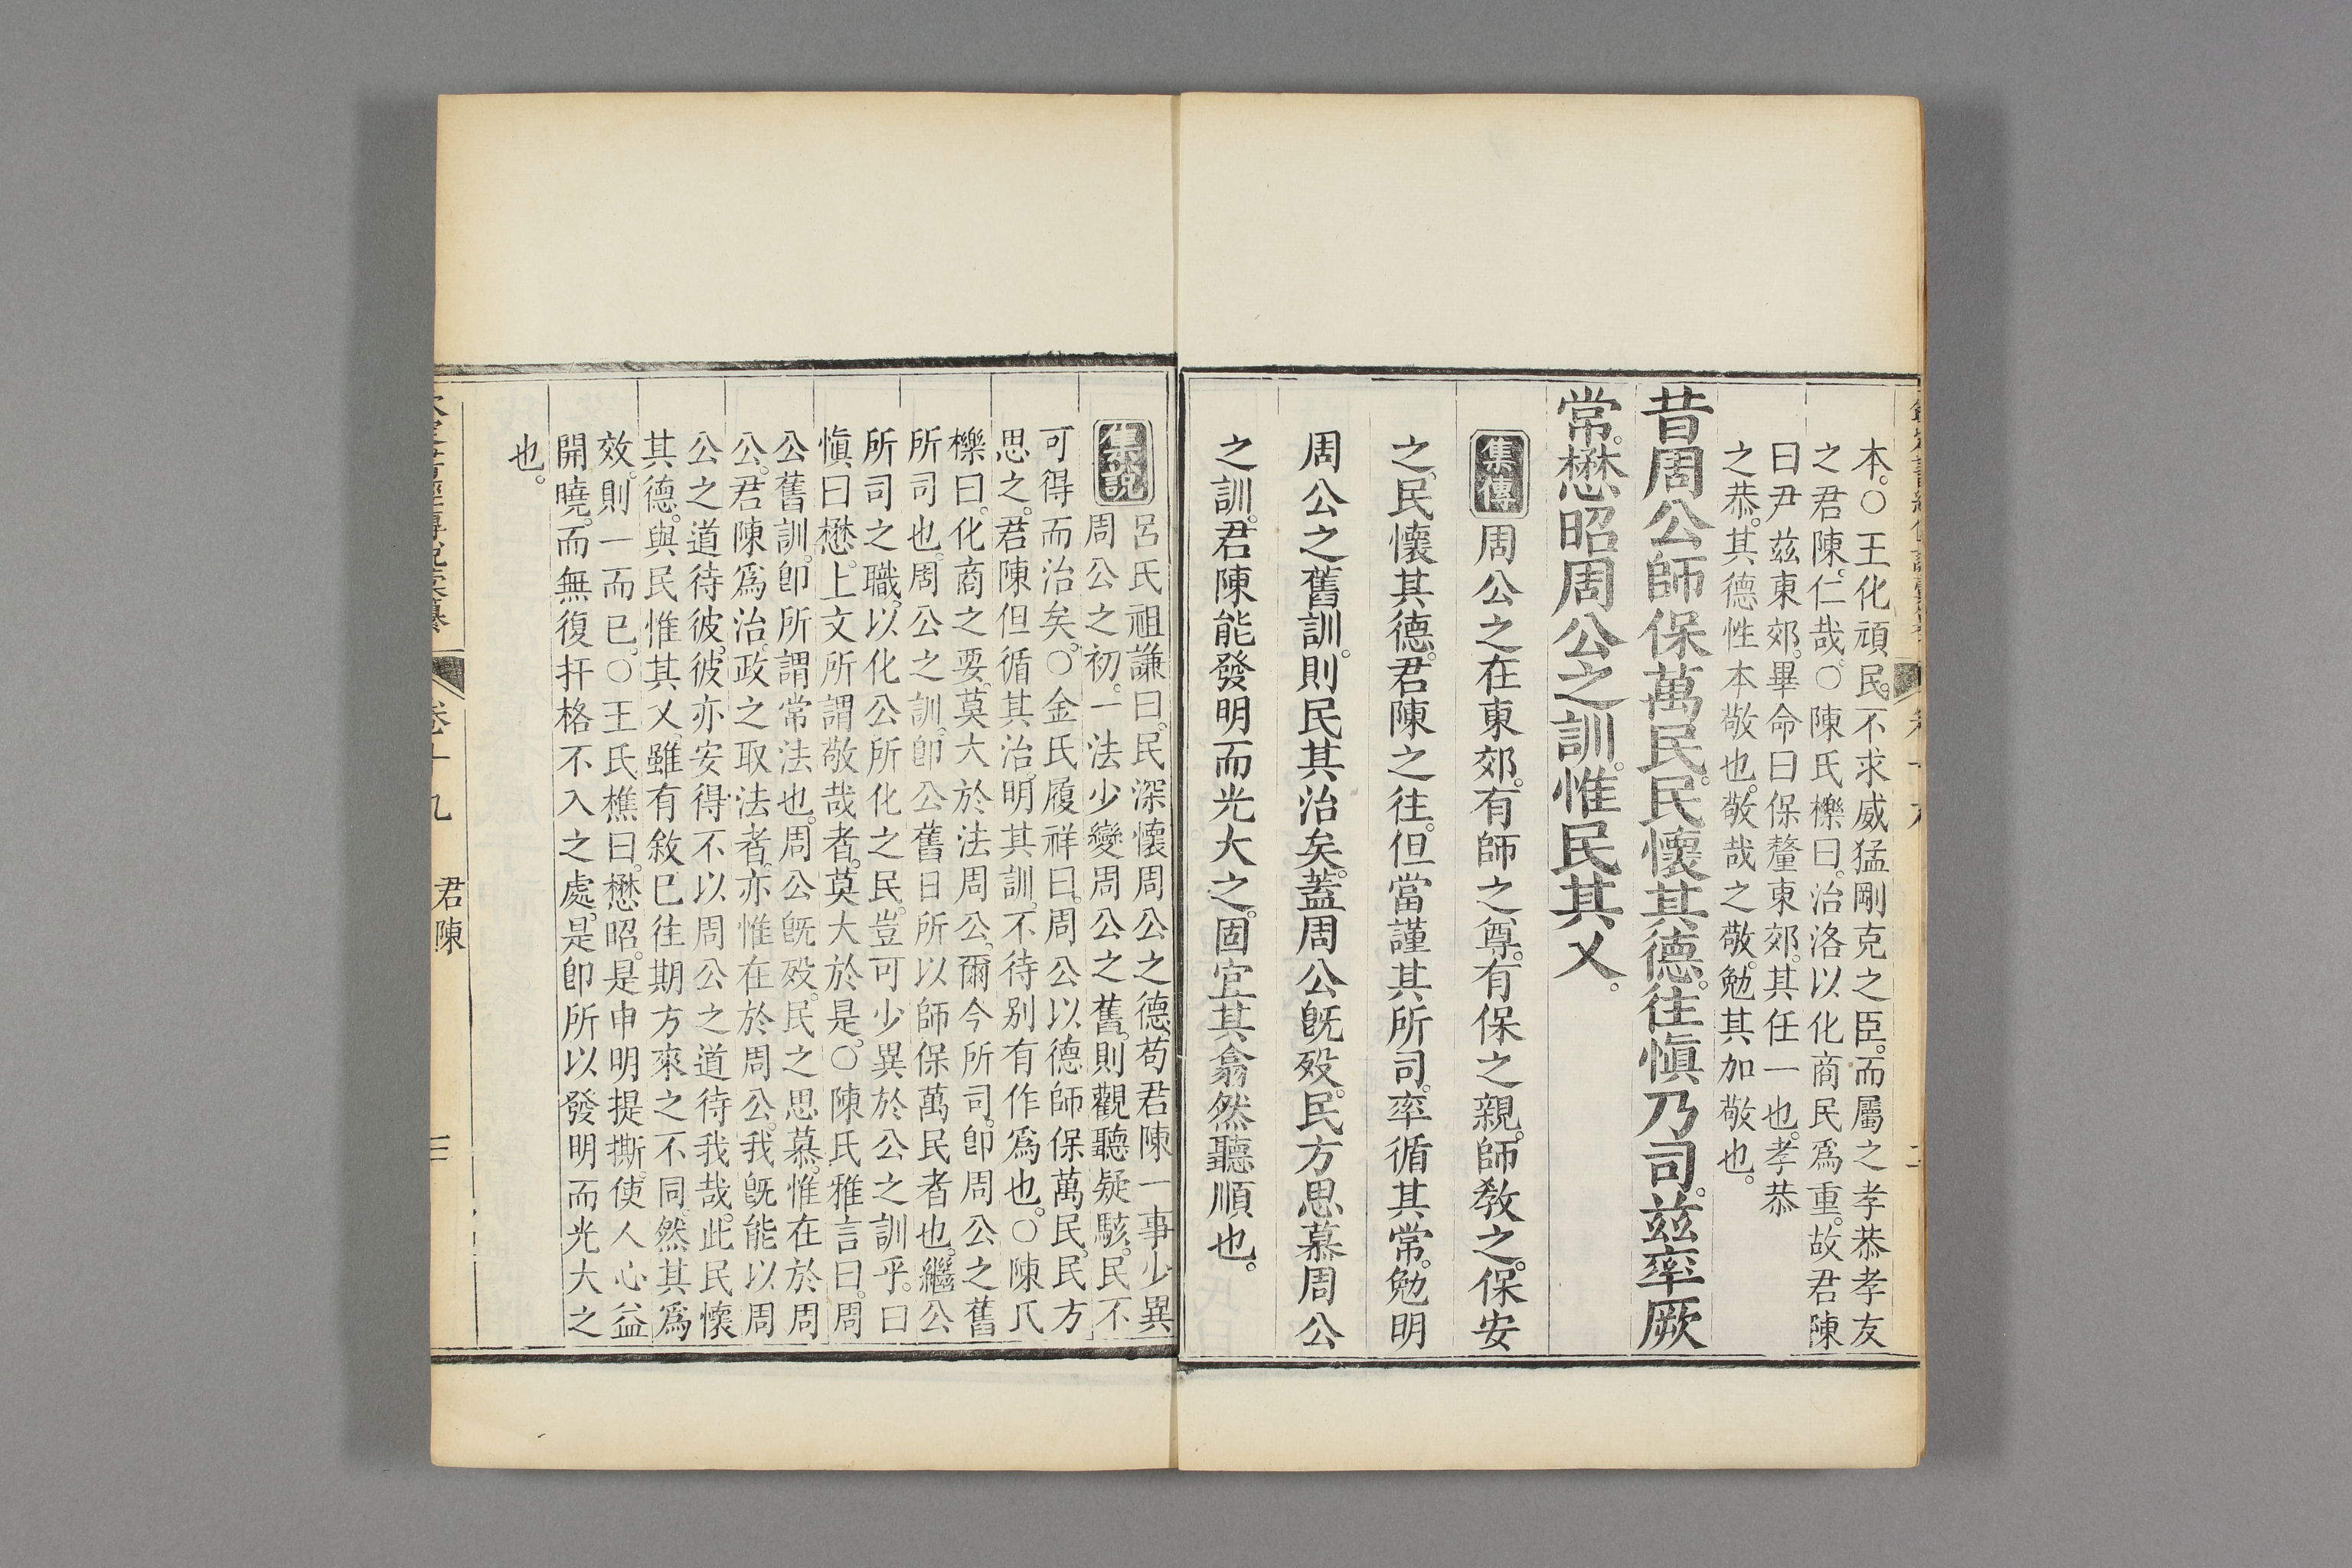 本。○王化頑民。不求威猛剛克之臣。而屬之孝恭孝友
之君陳。仁哉。○陳氏櫟曰。治洛以化商民爲重。故君陳
曰尹茲東郊。畢命曰保釐東郊。其任一也。孝恭
之恭。其德性本敬也。敬哉之敬。勉其加敬也。
昔周公師保萬民。民懷其德。往愼乃司。茲率厥
常。懋昭周公之訓。惟民其乂。
集傳 周公之在東郊。有師之尊。有保之親。師敎之。保安
之。民懷其德。君陳之往。但當謹其所司。率循其常。勉明
周公之舊訓。則民其治矣。蓋周公旣歿。民方思慕周公
之訓。君陳能發明而光大之。固宜其翕然聽順也。
集說 呂氏祖謙曰。民深懷周公之德。苟君陳一事少異
周公之初。一法少變周公之舊。則觀聽疑駭。民不
可得而治矣。○金氏履祥曰。周公以德師保萬民。民方
思之。君陳但循其治。明其訓。不待别有作爲也。○陳氏
櫟曰。化商之要。莫大於法周公。爾今所司。卽周公之舊
所司也。周公之訓。卽公舊日所以師保萬民者也。繼公
所司之職。以化公所化之民。豈可少異於公之訓乎。曰
愼曰懋。上文所謂敬哉者。莫大於是。○陳氏雅言曰。周
公舊訓。卽所謂常法也。周公旣歿。民之思慕。惟在於周
公。君陳爲治。政之取法者。亦惟在於周公。我旣能以周
公之道待彼。彼亦安得不以周公之道待我哉。此民懷
其德。與民惟其乂。雖有敘已往期方來之不同。然其爲
效。則一而已。○王氏樵曰。懋昭。是申明提撕。使人心益
開曉。而無復扞格不入之處。是卽所以發明而光大之
也。
卷十九 君陳 三